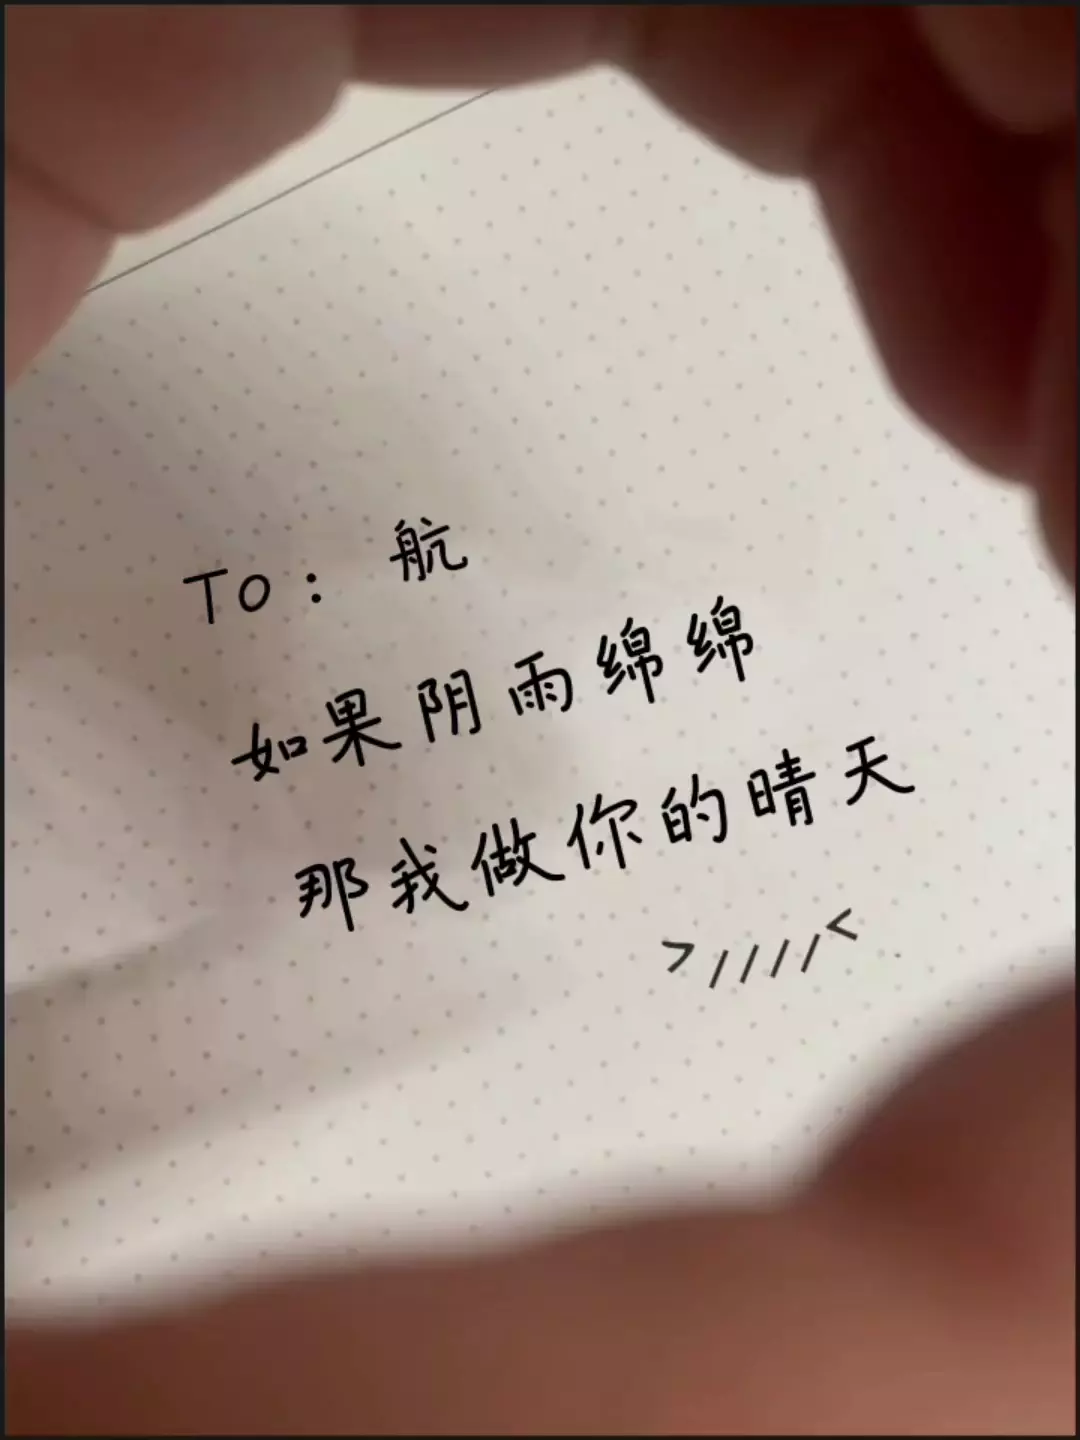 To：航
如果阴雨绵绵
那我做你的晴天
>////<